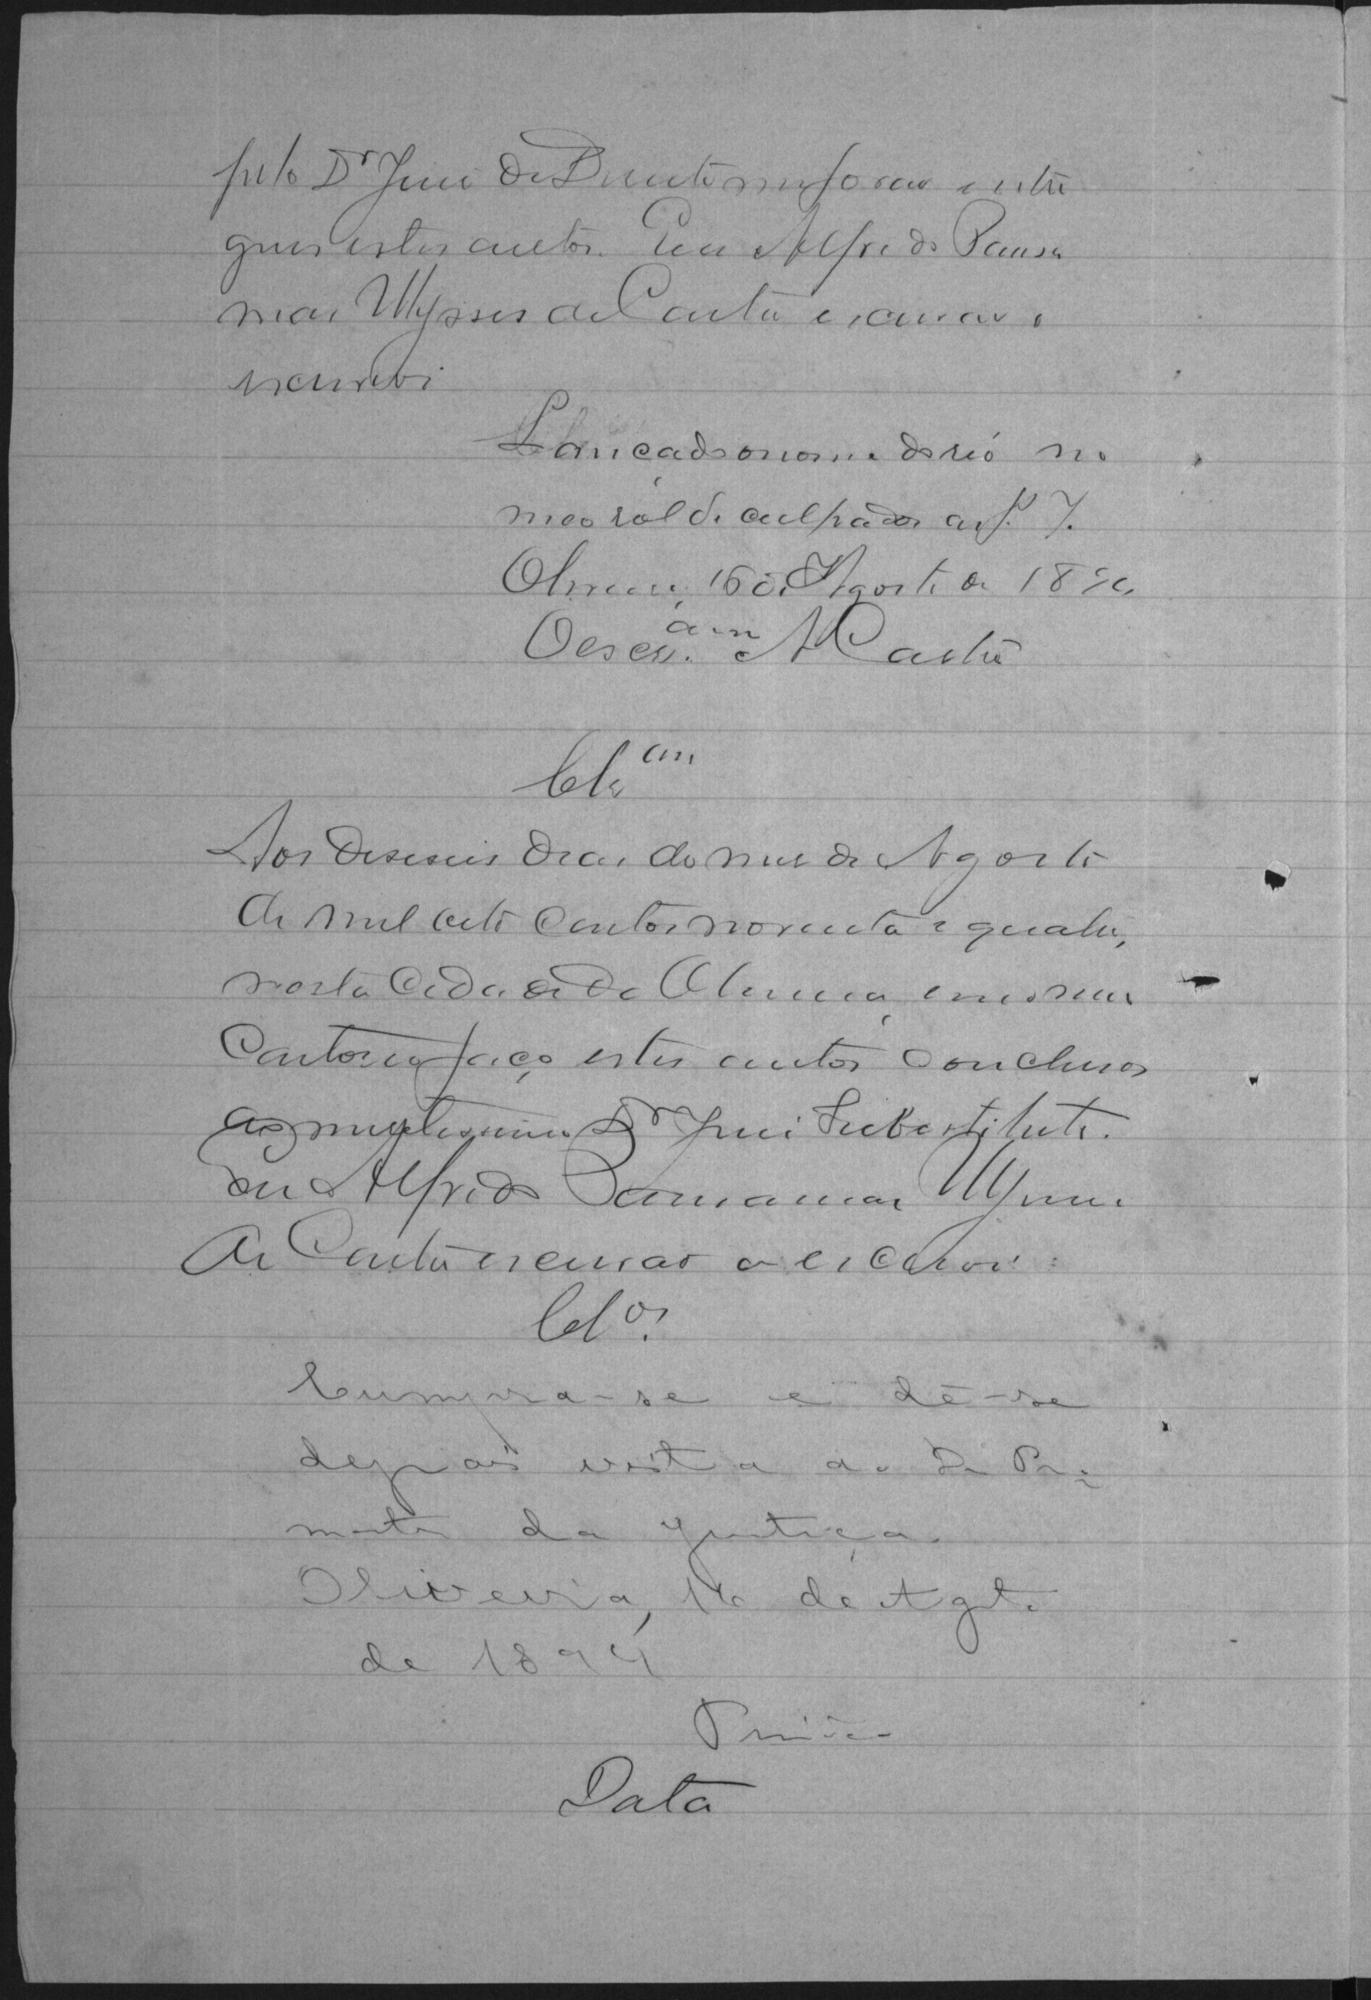 pelo Dr Juiz de Direito me forão entre
gues estes autos. Eu Alfredo Pana
mar Ulysses de Castro escrivão o
escrevi
Lançado o nome do réo no
meo ról de culpados a f. 7.
Oliveira, 16 de Agosto de 1894.
O escram. A Castro
Clsam
Aos deseseis dias do mes de Agosto
de mil oito centos noventa e quatro,
nesta Cidade de Oliveira, em o meu
Cartorio faço estes autos conclusos
ao meritissimo Dr Juiz Substituto.
Eu Alfredo Panamar Ulysses
de Castro escrivão o escrevi
Clos.
Cumpra-se e dê-se
depois vista ao Dr Pro
motor da Justiça.
Oliveira, 16 de Agto.
de 1894
Data